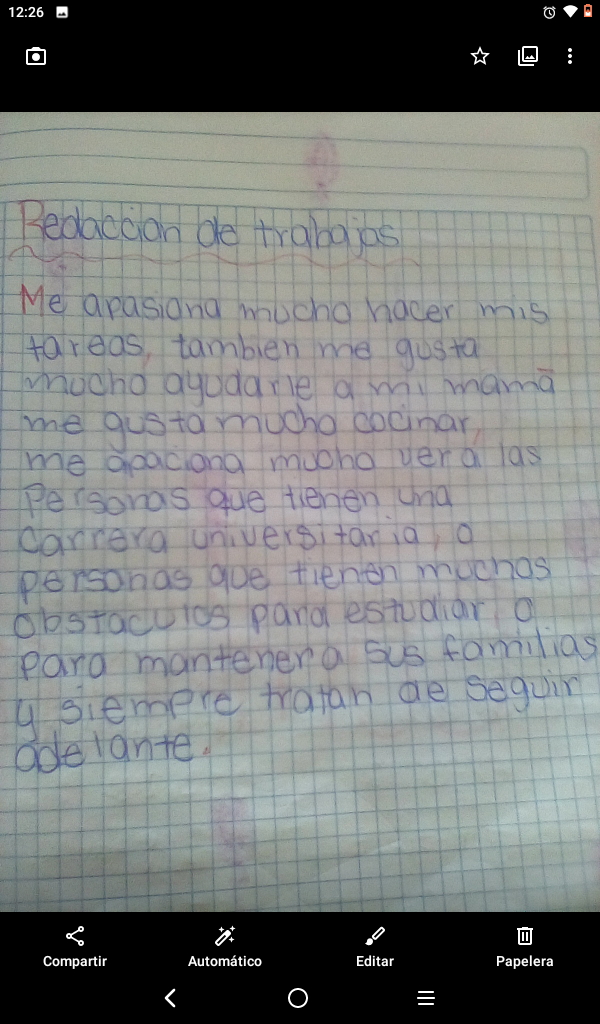 12:26
Redaccion de trabajos
Me apasiona mucho hacer mis
tareas, tambien me gusta
mucho ayudarle a mi mamá
me gusta mucho cocinar,
me apaciona mucho ver a las
Personas que tienen una
carrera universitaria, o
personas que tienen muchos
obstaculos para estudiar, o
para mantener a sus familias
y siempre tratan de seguir
adelante.
Compartir Automático Editar Papelera